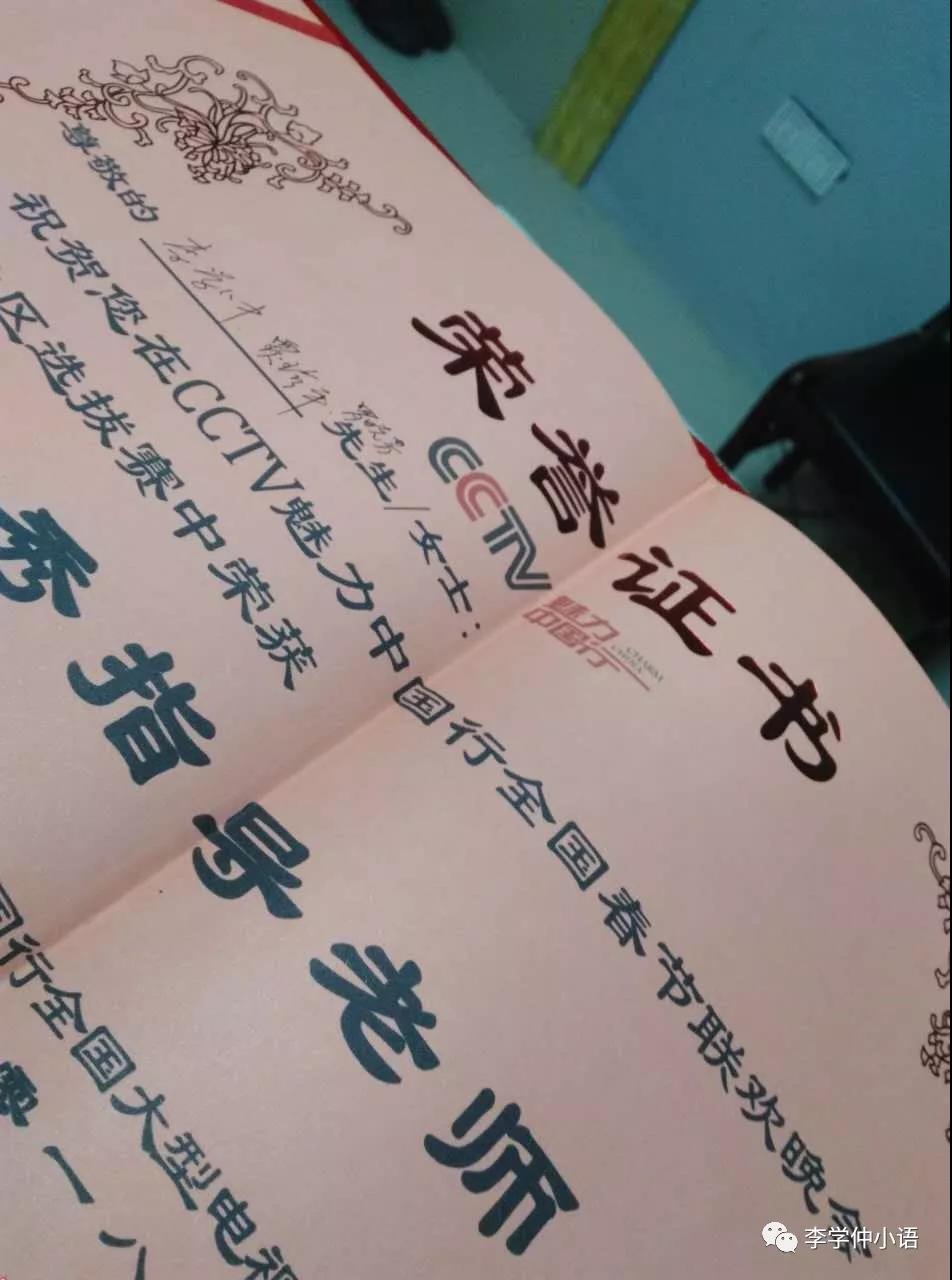 荣誉证书
CCTV
魅力
中国行
CHARM
CHINA
尊敬的 李学仲 贾 先生/女士:
祝贺您在CCTV魅力中国行全国春节联欢晚会
区选拔赛中荣获
秀指导老师
国行全国大型电视
零一八
李学仲小语